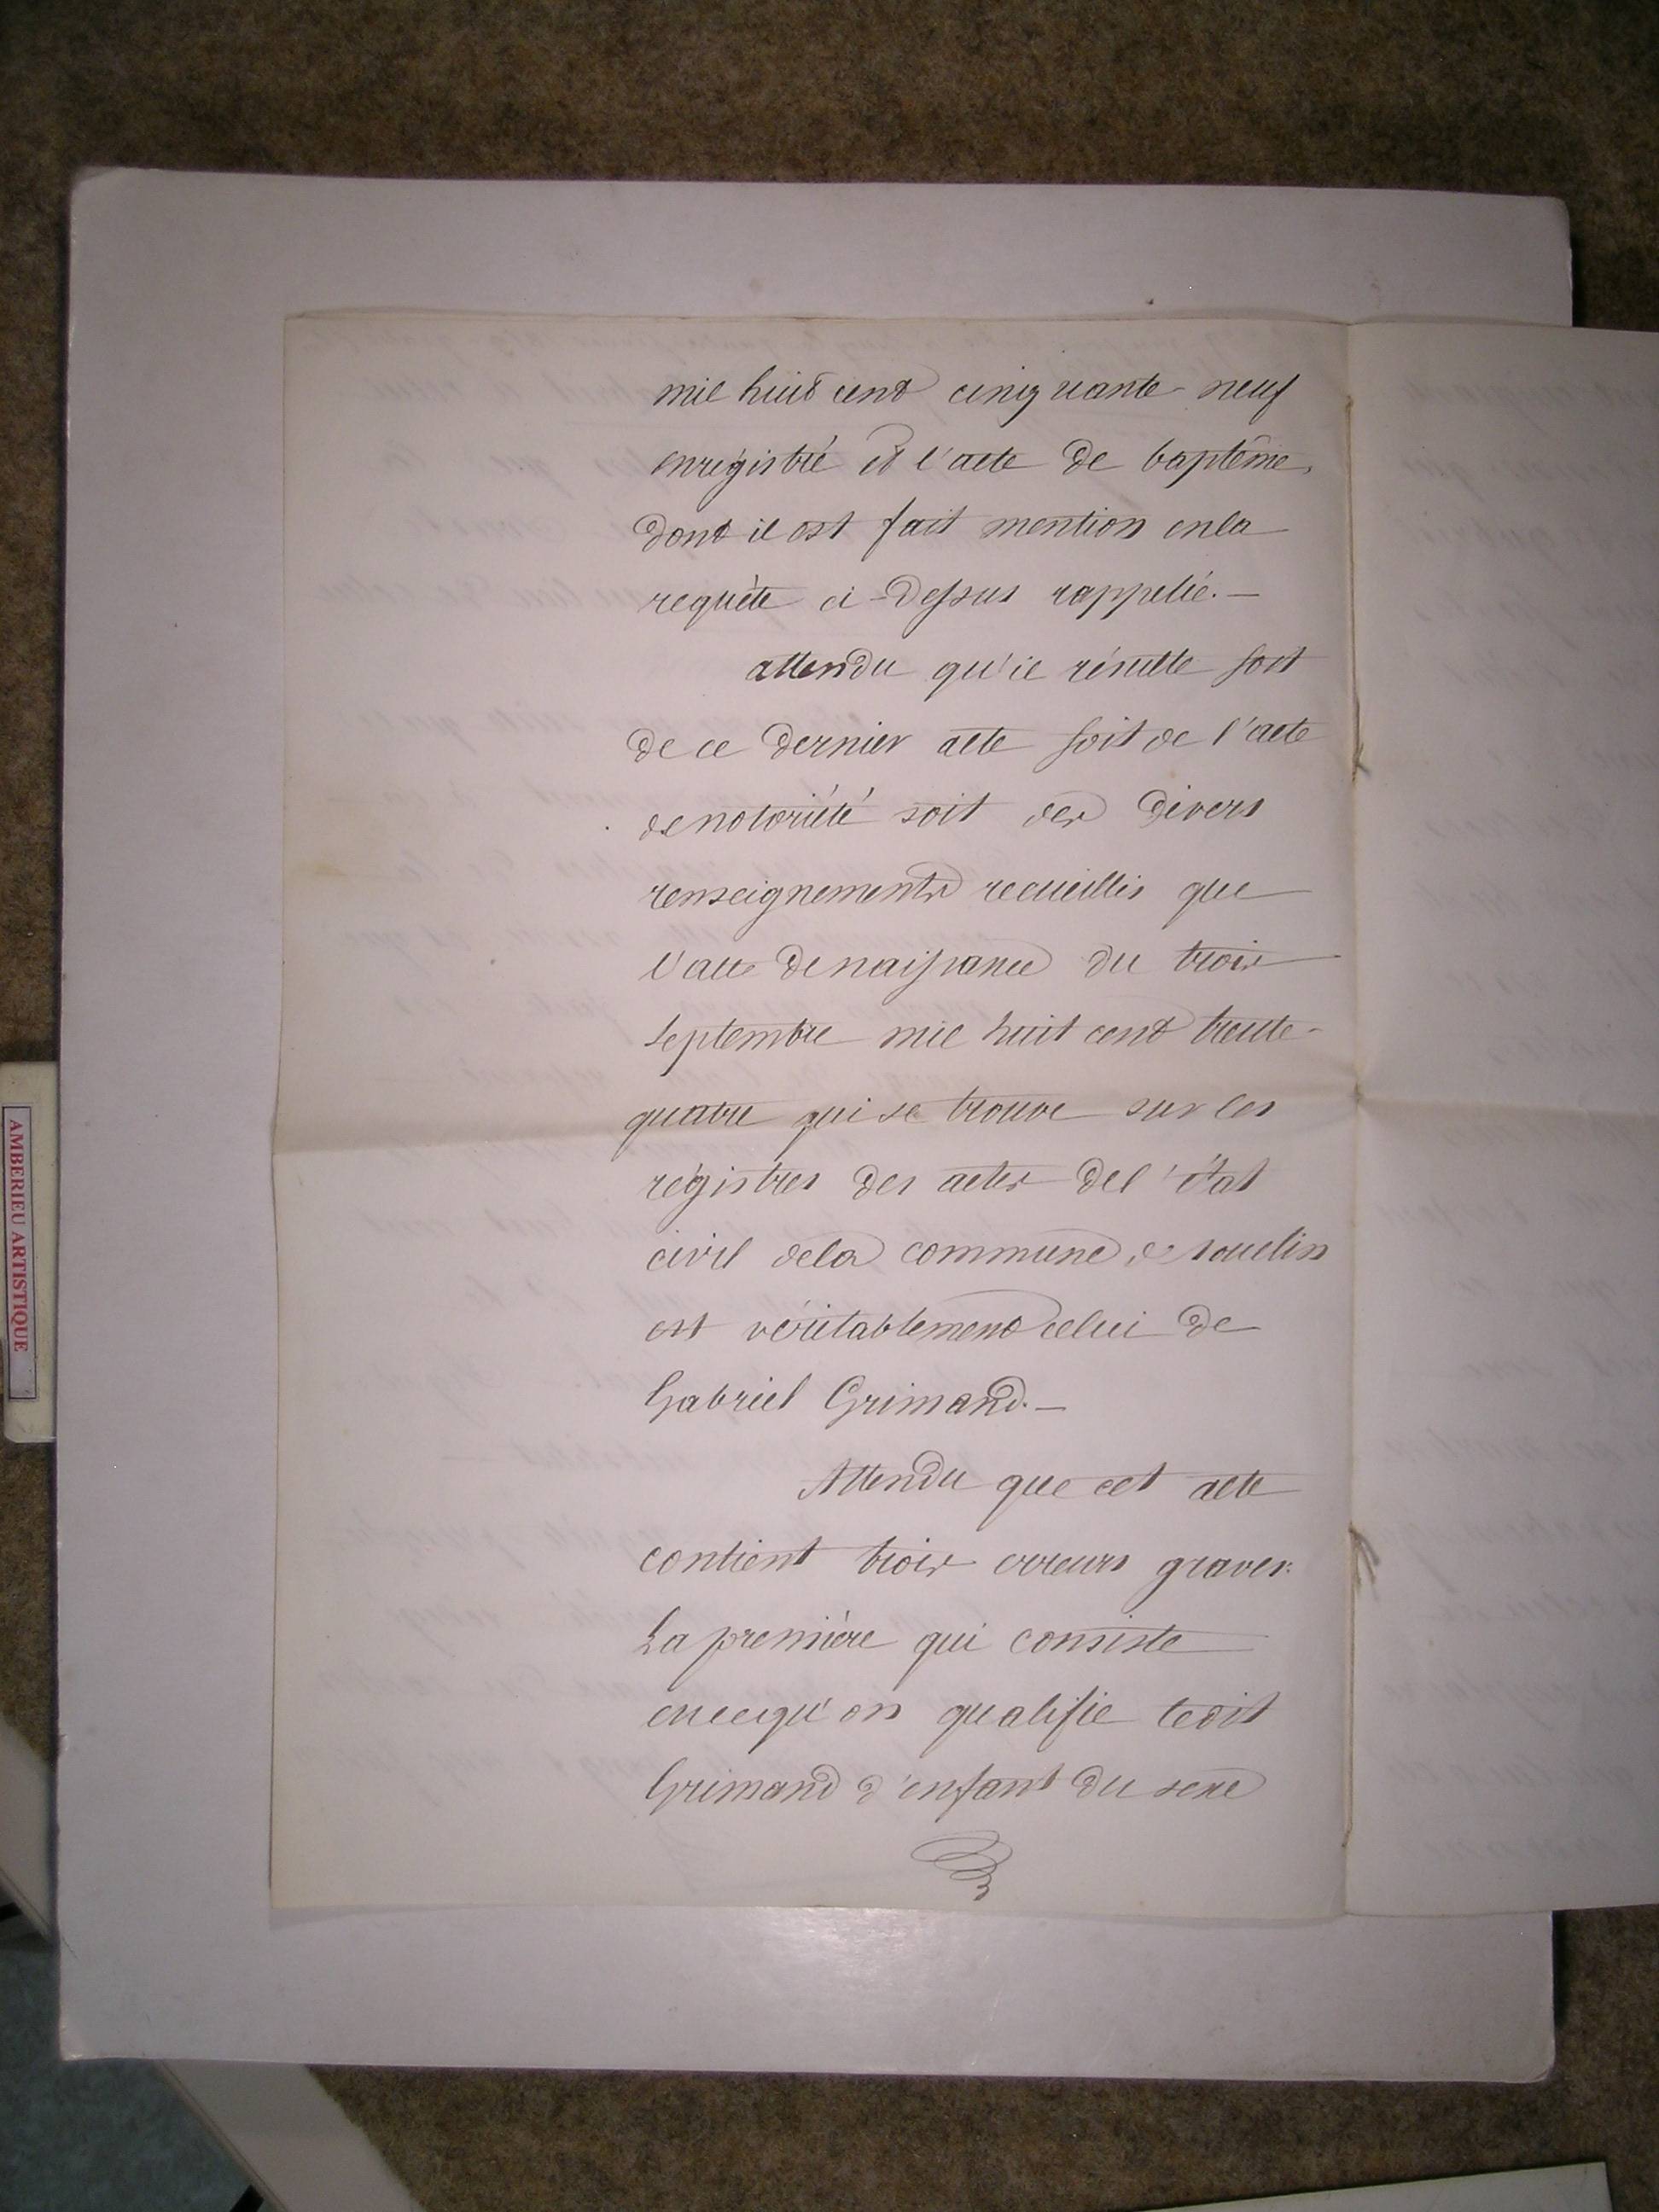 mil huit cent cinquante-neuf
enregistré et l'acte de baptême,
dont il est fait mention en la
requête ci-dessus rappelée.—
attendu qu'il résulte soit
de ce dernier acte soit de l'acte
de notoriété soit des divers
renseignements recueillis que
l'acte de naissance du trois
septembre mil huit cent trente-
quatre qui se trouve sur les
régistres des actes de l'état
civil de la commune de
est véritablement celui de
Gabriel Grimand.—
Attendu que cet acte
contient trois erreurs graves:
La première qui consiste
en ce qu'on qualifie ledit
Grimand d'enfant du sexe
AMBERIEU ARTISTIQUE